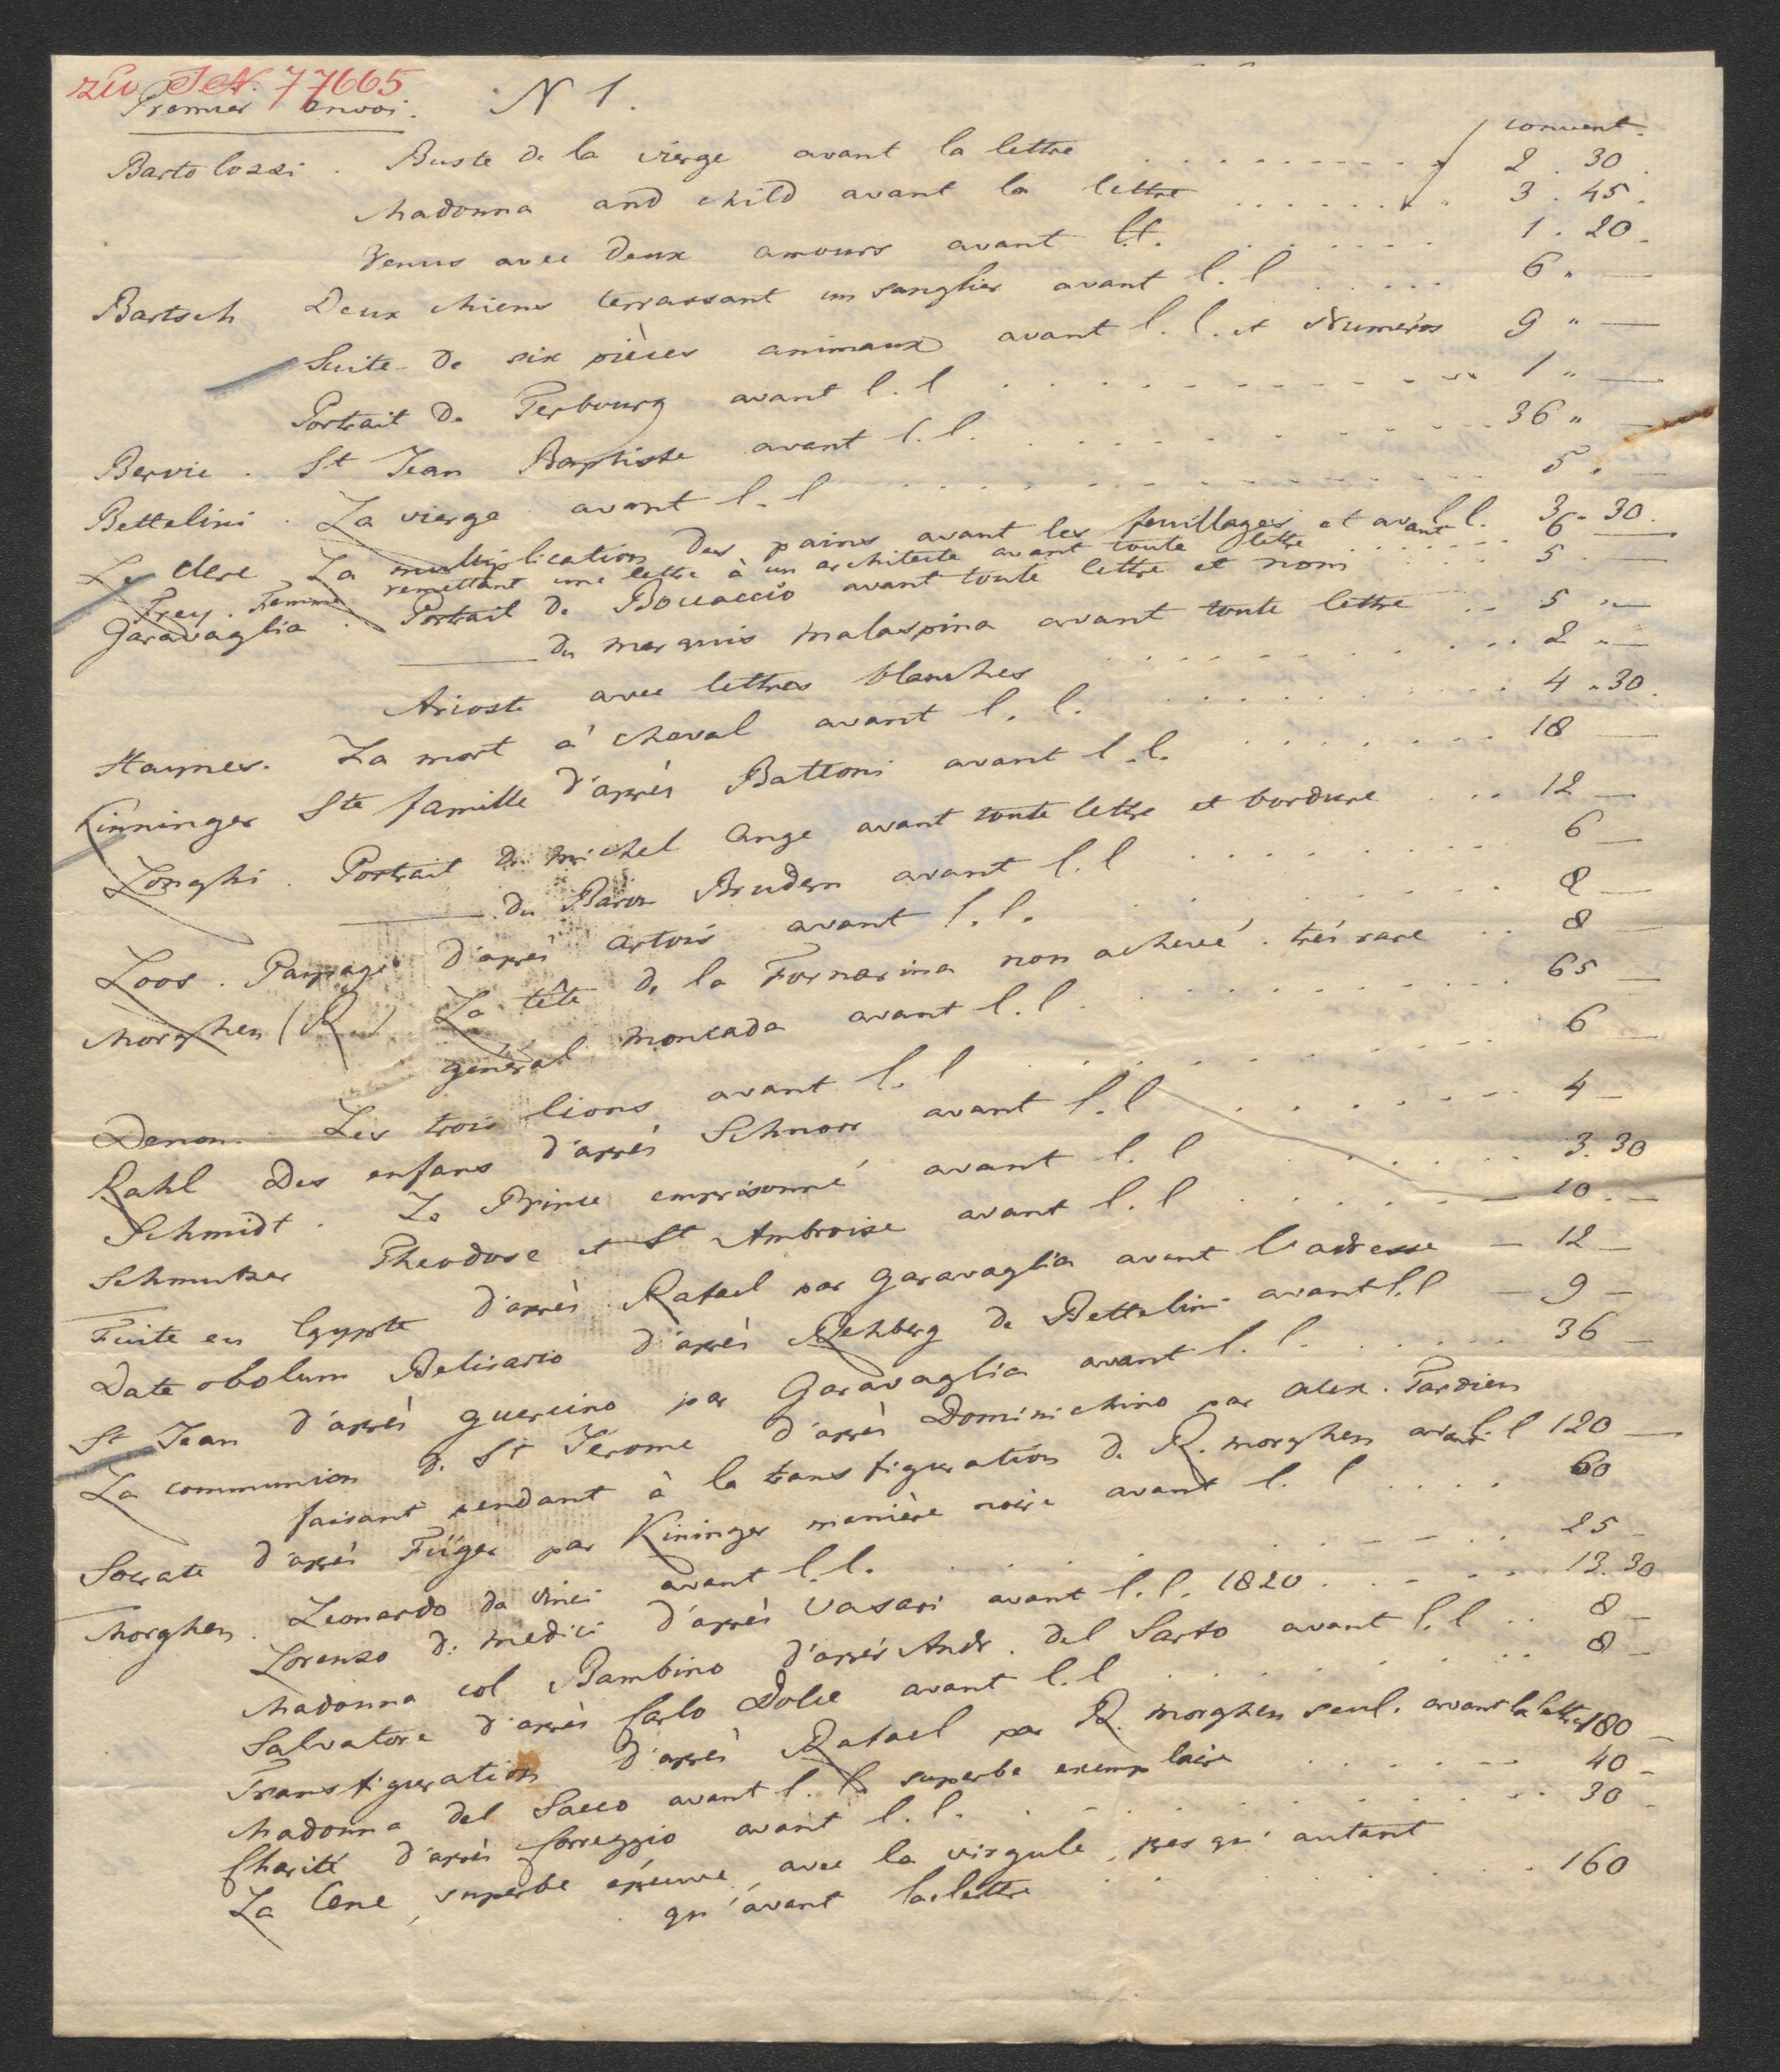 zu I.N. 77665
Premier envoi. N 1.
convent.
Bartolozzi. Buste de la vierge avant la lettre . . . . . . . . . 2 . 30 .
Madonna and child avant la lettre . . . . . . . 3 . 45 .
Venus avec deux amours avant l.l. . . . . . . 1 . 20 .
Bartsch Deux chiens terrassant un sanglier avant l. l . . . . . 6 " —
Suite de six pièces animaux avant l. l. et Numéros 9 " —
Portrait de Terbourg avant l. l . . . . . . . . . . . 1 " —
Bervic . St Jean Baptiste avant l. l. . . . . . . . . . . 36 " —
Bettelini . La vierge avant l. l . . . . . . . . . . . . 5 " —
Le Clerc La multiplication des pains avant les feuillages et avant l. 36 . 30 .
Frey . Femme remettant une lettre à un architecte avant toute lettre . . . . . . 6 —
Garavaglia . Portrait de Boccaccio avant toute lettre et nom . . . . 5 . —
—— du marquis Malaspina avant toute lettre . . 5 " —
Arioste avec lettres blanches . . . . . . . . . . 2 " —
Haynes. La mort à cheval avant l. l. . . . . . . . . . 4 " 30 .
Kinninger Ste famille d'après Battoni avant l. l. . . . . . . . . 18 —
Longhi . Portrait de Michel Ange avant toute lettre et bordure . . . 12 —
—— du Baron Brudern avant l. l . . . . . . . . . 6 —
Loos . Paysage d'après Artois avant l. l. . . . . . . . . 2 —
Morghen (R.) La tête de la Fornarina non achevé . très rare . . 8 —
général Moncada avant l. l. . . . . . . . . . . 65 —
Denon . Les trois lions avant l. l . . . . . . . . . 6 —
Rahl Des enfans d'après Schnorr avant l. l . . . . . . . . 4 —
Schmidt . Le Prince emprisonné avant l. l . . . . . . . 3 . 30
Schmutzer Theodose et St Ambroise avant l. l . . . . . . — 10 . —
Fuite en Egypte d'après Rafael par Garavaglia avant l'adresse — 12 —
Date obolum Belisario d'après Rehberg de Bettelini avant l. l — 9 —
St Jean d'après guercino par Garavaglia avant l. l. . . . . . 36 —
La communion de St Jerome d'après Dominichino par Alex . Tardieu
faisant pendant à la transfiguration de R. Morghen avant l. l 120 —
Socrate d'après Füger par Kininger manière noire avant l. l . . . . 60
Morghen . Leonardo da Vinci avant l. l. . . . . . . . . . . 25 —
Lorenzo de Medici d'après Vasari avant l. l. 1820 . . . . . . 13 . 30
Madonna col Bambino d'après Andr . del Sarto avant l. l . . 8 —
Salvatore d'après Carlo Dolce avant l. l . . . . . . . . . 8 —
Transfiguration d'après Rafael par R. Morghen seul . avant la lettre 180 —
Madonna del Sacco avant l. l. superbe exemplaire . . . . . . 40 —
Charité d'après Correggio avant l. l. . . . . . . . . . . 30 —
La Cene , superbe épreuve avec la virgule , presqu'autant
qu'avant la lettre . . . . . . . . . 160